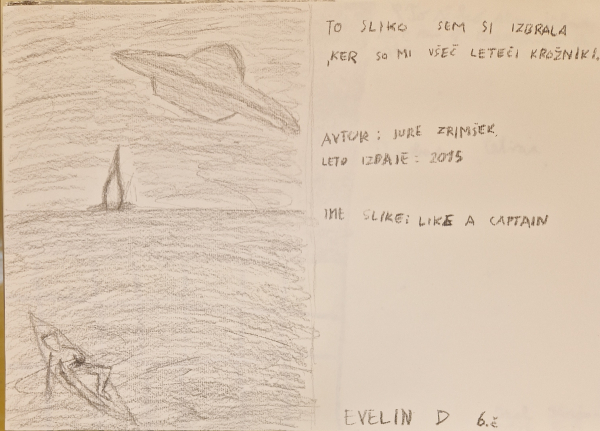 TO SLIKO SEM SI IZBRALA
,KER SO MI VŠEČ LETEČI KROŽNIKI.
AVTOR: JURE ZRIMŠEK.
LETO IZDAJE: 2015
IME SLIKE: LIKE A CAPTAIN
EVELIN D 6.č